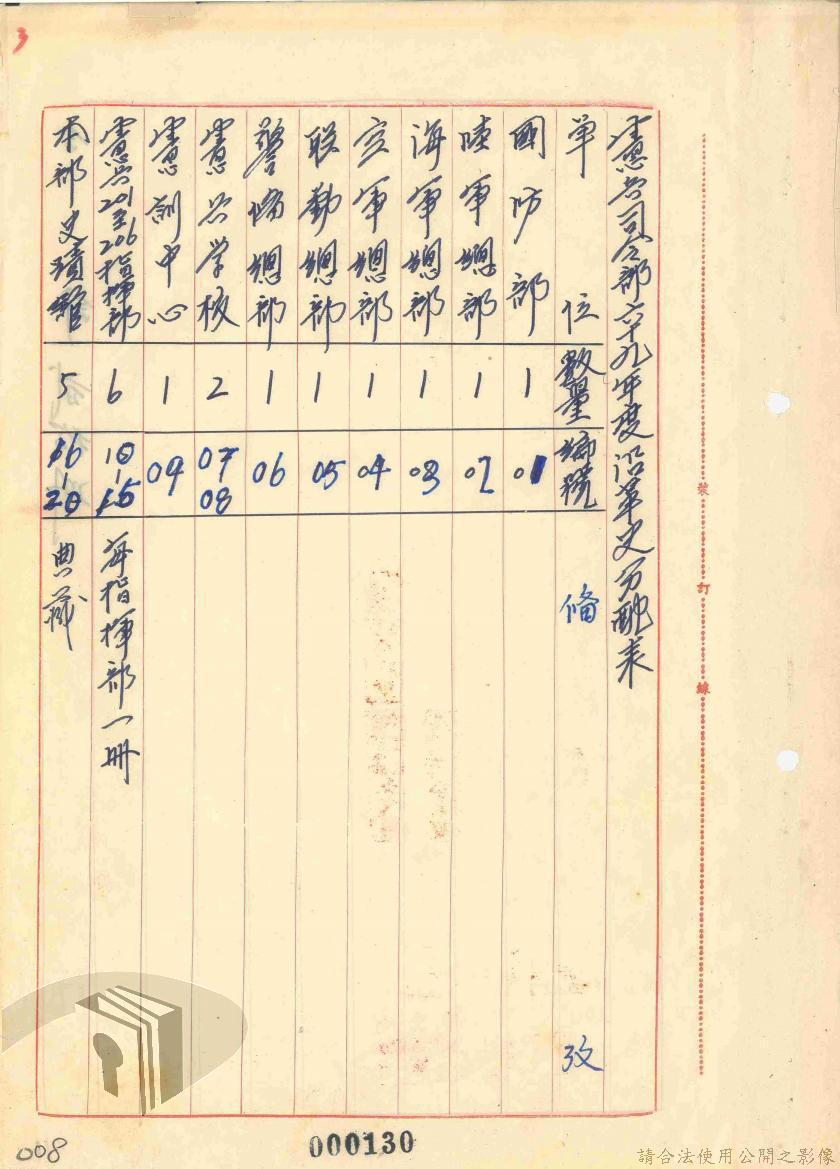 3
憲兵司令部六十九年度沿革史分配表
單位 數量 編號 備攷
國防部 1 01
陸軍總部 1 02
海軍總部 1 03
空軍總部 1 04
联勤總部 1 05
警備總部 1 06
憲兵学校 2 07 08
憲訓中心 1 09
憲兵201至206指揮部 6 10-15 每指揮部一冊
本部史蹟館 5 16-20 典藏
裝訂線
008
000130
請合法使用公開之影像